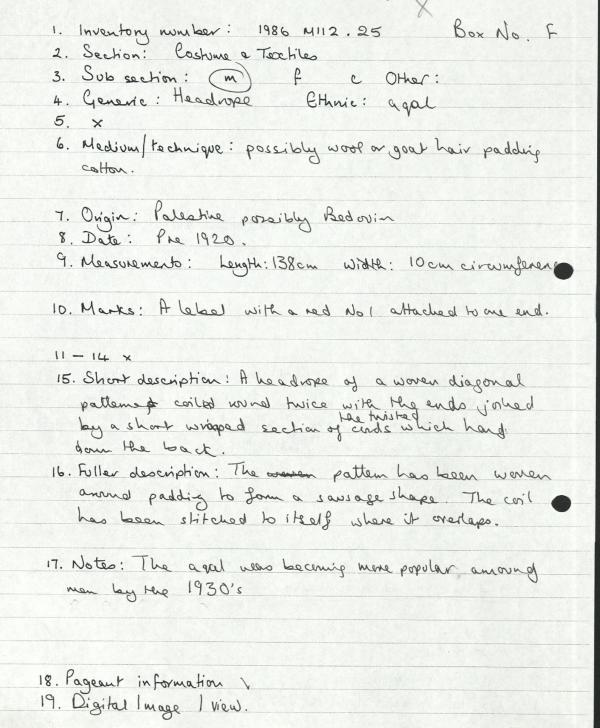 1. Inventory number: 1986 M112.25 Box No. F
2. Section: Costume & Textiles
3. Sub section: m f c Other:
4. Generic: Headrope Ethnic: aqal
5. x
6. Medium/technique: possibly wool or goat hair padding
cotton.
7. Origin: Palestine possibly Bedouin
8. Date: Pre 1920.
9. Measurements: Length: 138cm Width: 10cm circumferen
10. Marks: A label with a red No1 attached to one end.
11 – 14 x
15. Short description: A headrope of a woven diagonal
pattern coiled round twice with the ends joined
by a short wrapped section of the twisted cords which hang
down the back.
16. Fuller description: The woven pattern has been woven
around padding to form a sausage shape. The coil
has been stitched to itself where it overlaps.
17. Notes: The aqal was becoming more popular amoung
men by the 1930's
18. Pageant information \
19. Digital Image 1 view.